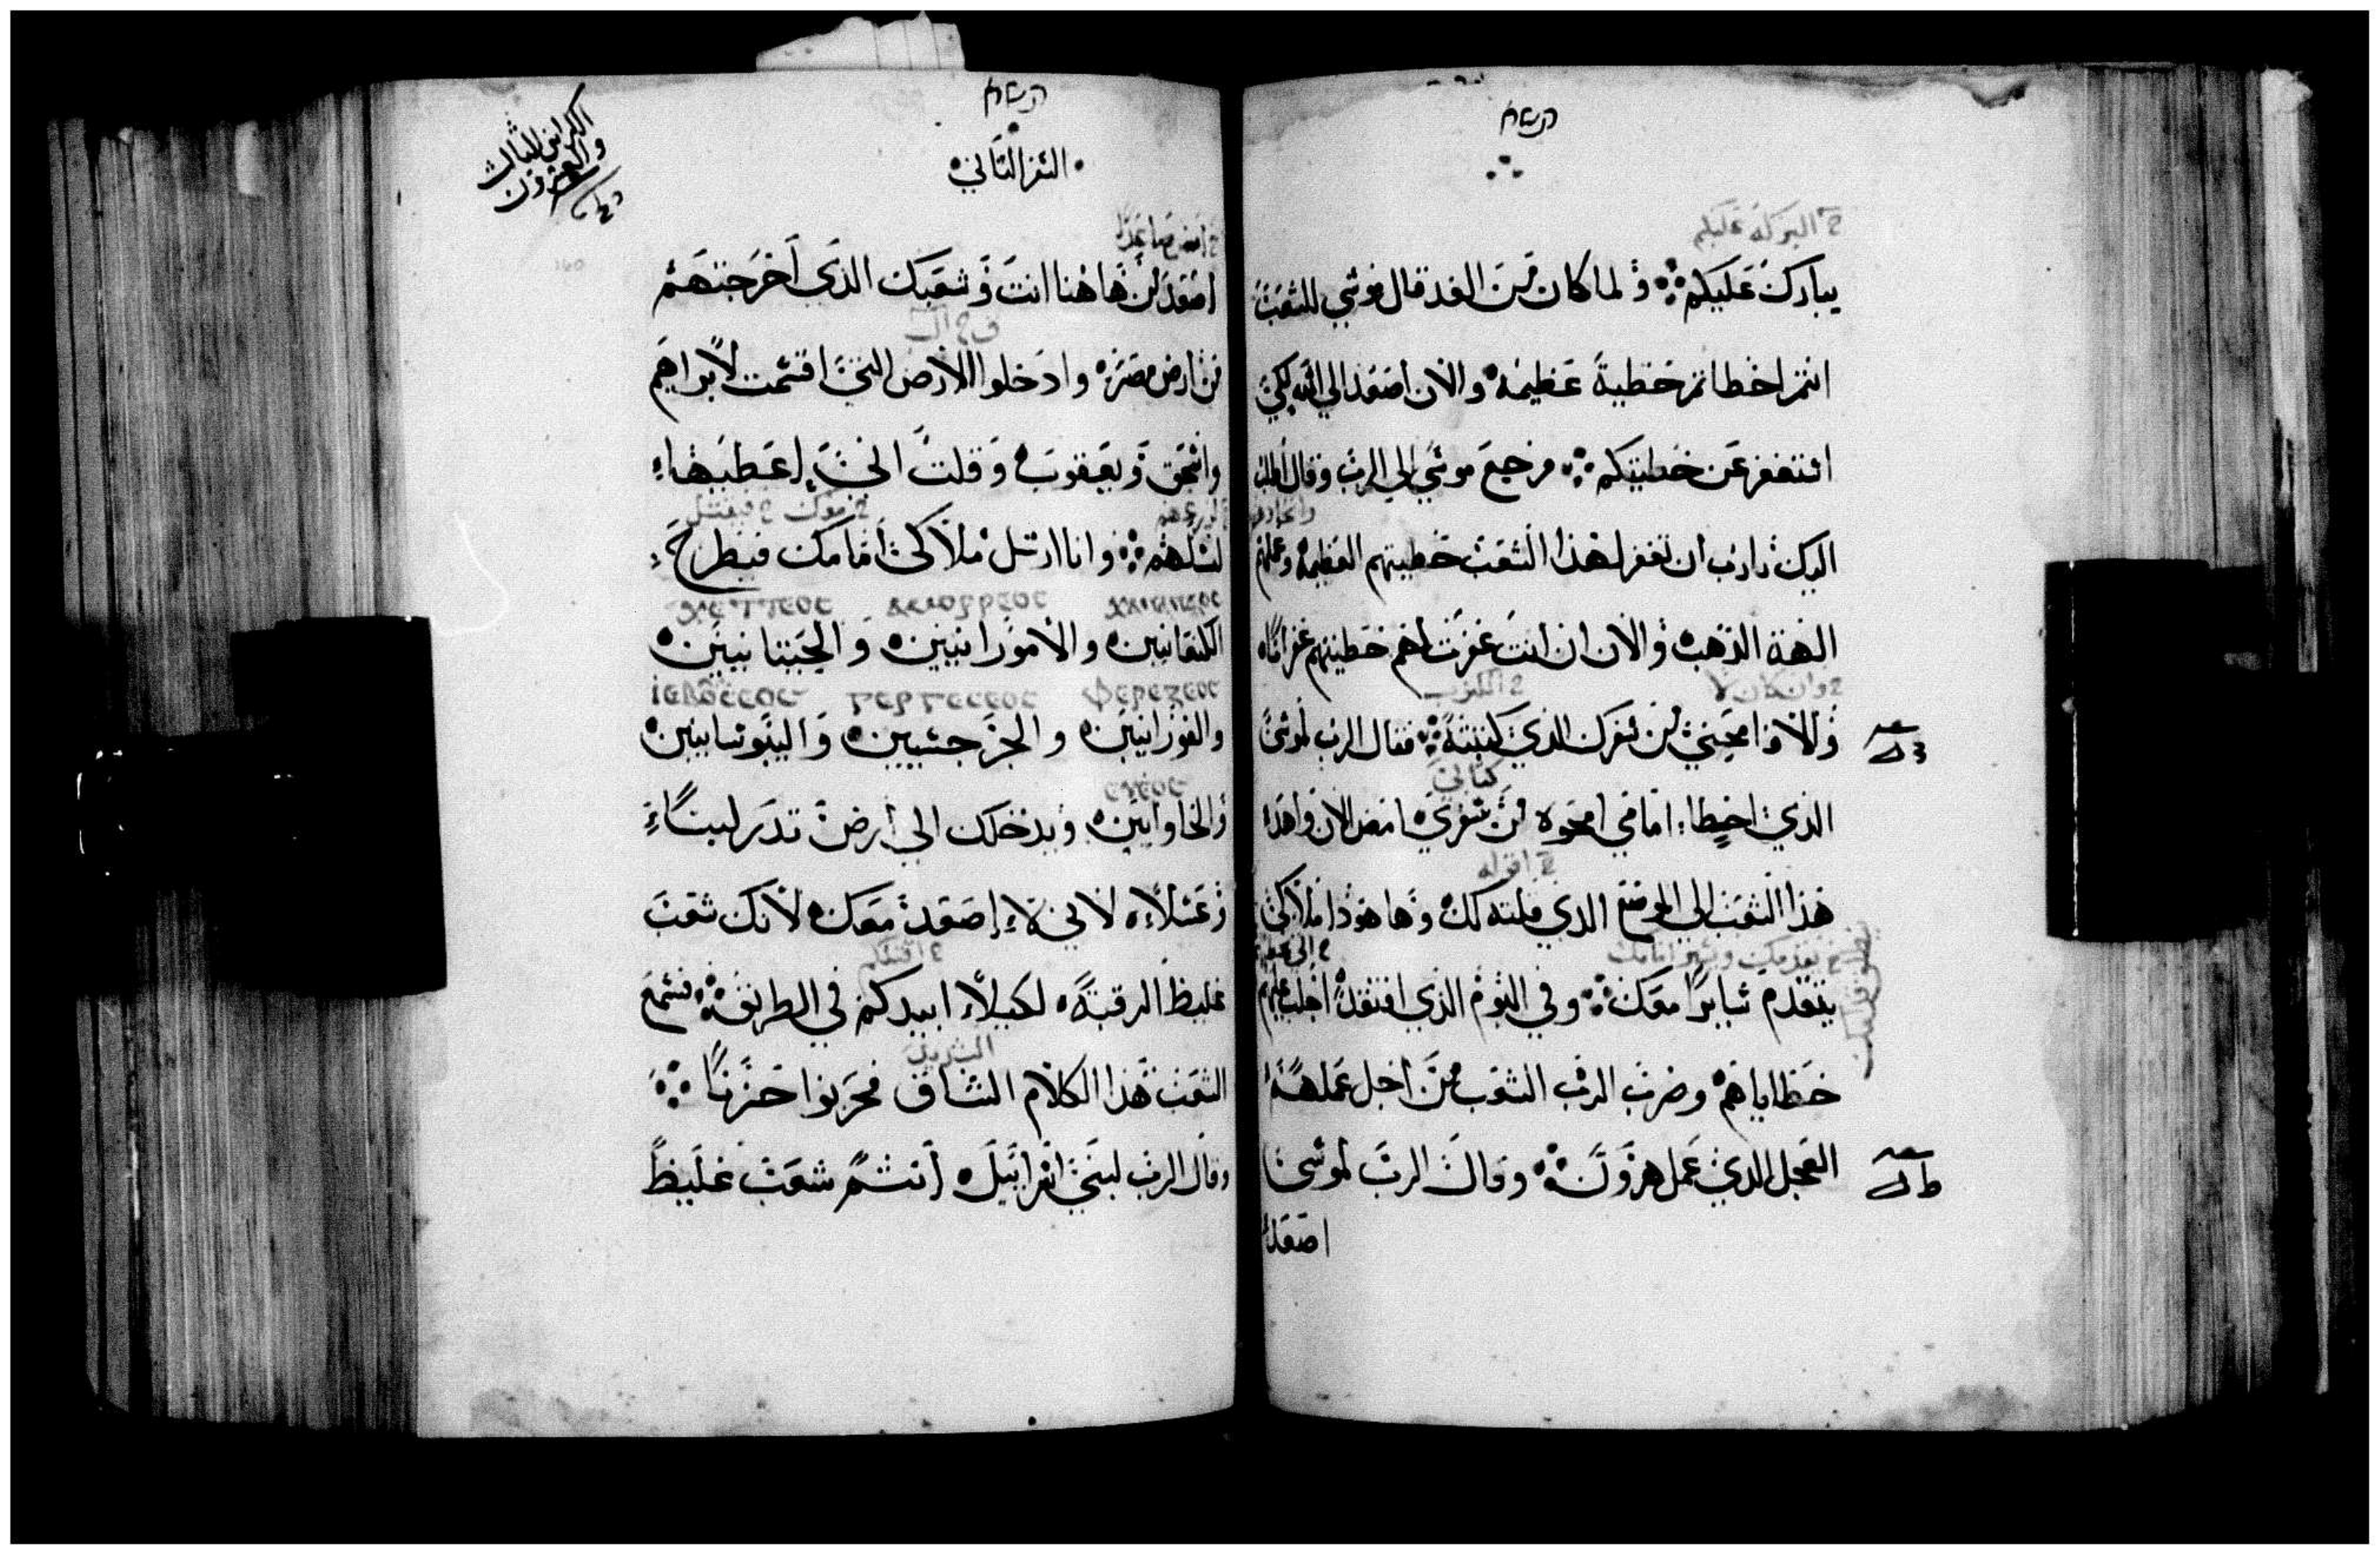 ح البركة عليكم
يبارك عليكم ۞ ولما كان من الغد قال موسي للشعب
انتم اخطاتم خطية عظيمة والان اصعد الي الله لكي
استغفر عن خطيتكم ۞ فرجع موسي الي الرب وقال اطلب
اليك يارب ان تغفر لهذا الشعب خطيتهم العظيمة وعملهم
الهة الذهب والان ان انت غفرت لهم خطيتهم غفرانا
ح وان كان لا
والا فامحيني من سفرك الذي كتبته ۞ فقال الرب لموسي
كتابي
الذي اخطا امامي امحوه من سفري امض الان واهد
ح اقوله
هذا الشعب الي الموضع الذي قلته لك وها هوذا ملاكي
يتقدم سايرا معك ۞ وفي اليوم الذي افتقد اجلب عليهم
خطاياهم وضرب الرب الشعب من اجل عملهم
العجل الذي عمل هرون ۞ وقال الرب لموسي
اصعد
الكراس الثالث
والعشرون
السفر الثاني
اصعد من هاهنا انت وشعبك الذي اخرجتهم
من ارض مصر وادخلوا الارض التي اقسمت لابراهيم
واسحق ويعقوب وقلت اني اعطيها
لنسلهم ۞ وانا ارسل ملاكي امامك فيطرح
الكنعانيين والامورانيين والحيتانيين
ⲓⲉⲃⲟⲩⲥⲉⲟⲥ ⲅⲉⲣⲅⲉⲥⲉⲟⲥ ⲫⲉⲣⲉⲍⲉⲟⲥ
والفرزانيين والجرجسيين واليبوسانيين
والحاوايين ويدخلك الي ارض تدر لبنا
وعسلا لاني لا اصعد معك لانك شعب
غليظ الرقبة لكيلا ابيدكم في الطريق ۞ فسمع
الشعب هذا الكلام الشاق فحزنوا حزنا ۞
وقال الرب لبني اسرائيل انتم شعب غليظ